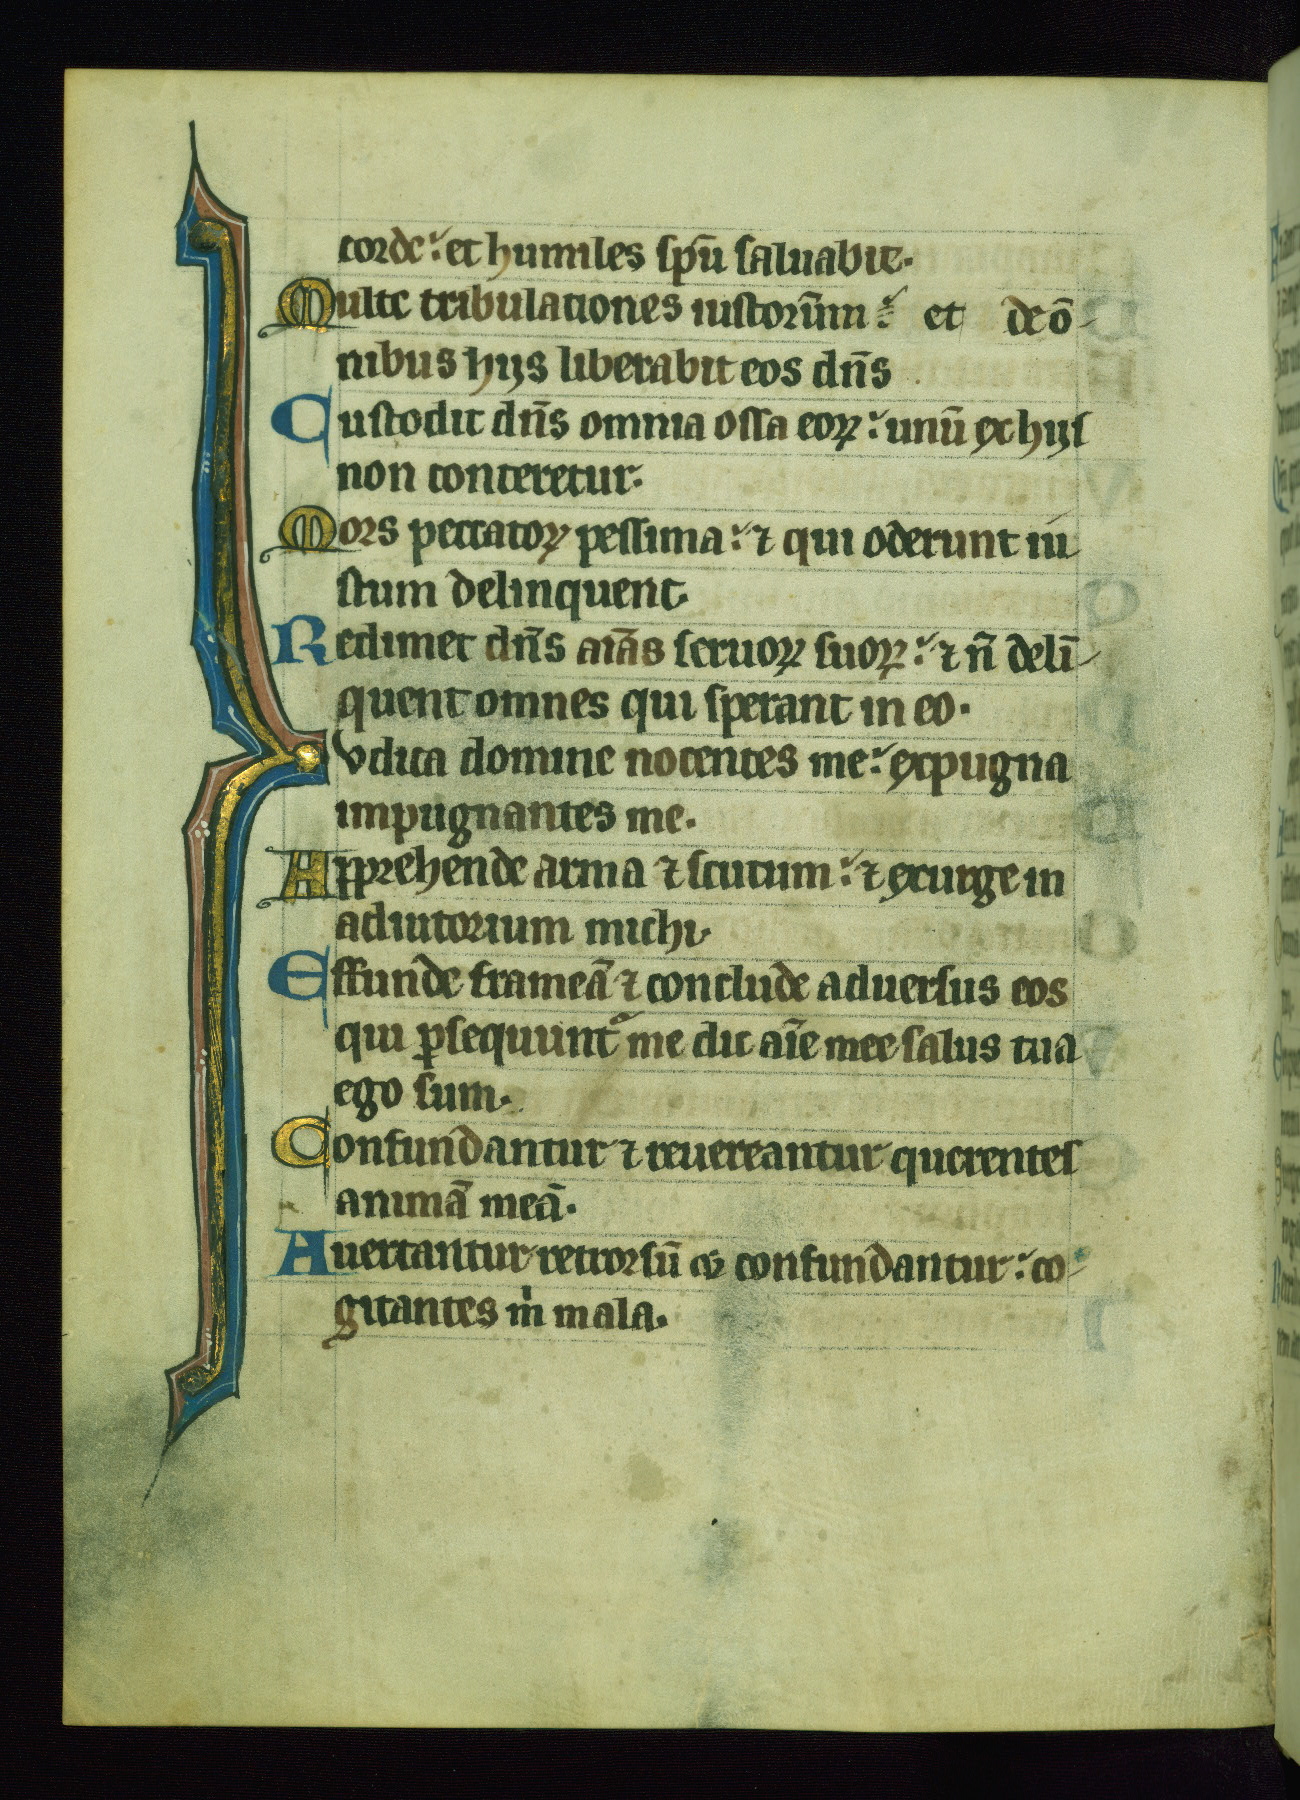 corde: et humiles sp̄u saluabit.
Multe tribulationes iustoru̅m: et de o̅-
nibus hijs liberabit eos dn̄s
Custodit dn̄s omnia ossa eoꝝ: unu̅ ex hijs
non conteretur.
Mors peccatoꝝ pessima: ⁊ qui oderunt iu-
stum delinquent.
Redimet dn̄s ai̅as seruoꝝ suoꝝ: ⁊ n̄ deli̅-
quent omnes qui sperant in eo.
Vdica domine nocentes me: expugna
impugnantes me.
Apprehende arma ⁊ scutum: ⁊ exurge in
adiutorium michi.
Effunde framea̅ ⁊ conclude aduersus eos
qui ꝑsequunt᷑ me dic ai̅e mee salus tua
ego sum.
Confundantur ⁊ reuereantur querentes
anima̅ mea̅.
Auertantur retrorsu̅ et confundantur: co-
gitantes m̄ mala.